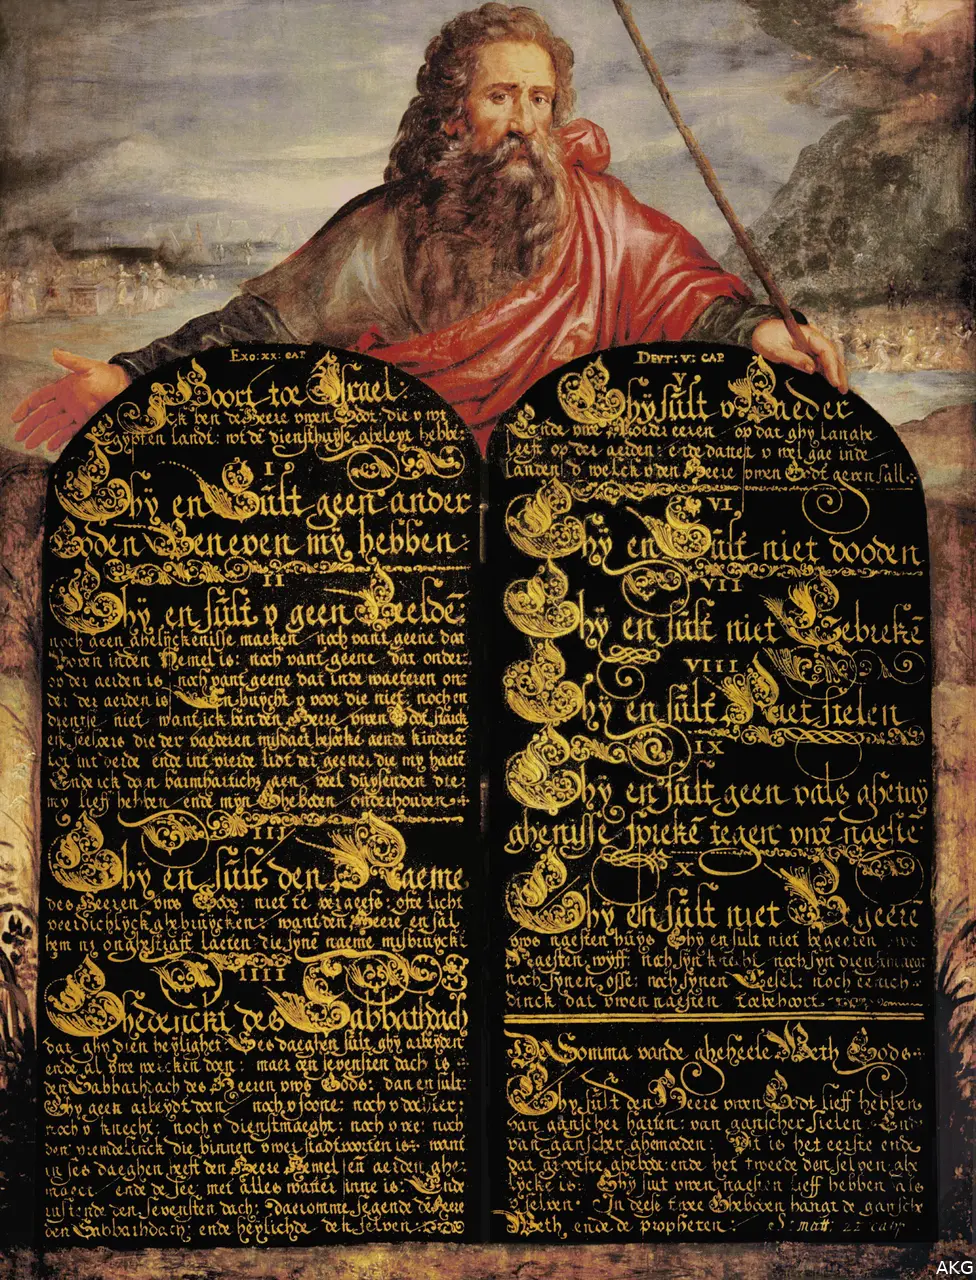 Exo: xx: cap
Hoort toe Israel:
Ick ben de Heere uwen Godt, die u wt
Egypten landt: wt dē diensthuyse gheleyt hebbe:
I
Ghÿ en Sült geen ander
Goden Beneven mÿ hebben:
II
Ghÿ en sült v geen Beeldē
noch geen ghelÿckenisse maeken noch vant geene dat
boven inden Hemel is: noch vant geene dat onder
op der aerden is noch vant geene dat inde waeteren on:
der der aerden is En buÿcht v voor die niet noch en
dientse niet want ick ben den Heere uwen Godt
die der vaederen misdaet aende kinderē
int derde ende int vierde lidt der geener die mÿ
Ende ick doe barmharticheÿt aen veel duÿsenden die
mÿ lieff hebben ende mÿn Gheboden onderhouden
III
Ghÿ en sült den Naeme
des Heeren uws Gods: niet te vergeefs: ofte licht
veerdichlÿck ghebruÿcken: want den Heere en sal
hem niet onghestrafft laeten: die sÿnē naeme misbruÿckt
IIII
Ghedenckt des Sabbathdach
dat ghÿ dien heÿlighet Ses daeghen sült ghÿ arbeÿden
ende al uwe wercken doen: maer den sevensten dach is
den Sabbathdach des Heeren uws Gods: dan en sült:
Ghÿ geen arbeÿdt doen noch v soone: noch v dochter:
noch v knecht: noch v dienstmaeght: noch v vee: noch
den vremdelinck die binnen uwer stadtpoorten is: want
in ses daeghen heeft den Heere Hemel en aerden ghe:
maect ende de see met alles watter inne is: Ende
ruste den sevensten dach: daeromme segende de Heere
den Sabbathdach ende heÿlichde den selven
Devt: v: cap
V
Ghÿ sült v Vaeder
Ende uwe Moeder eeren op dat ghÿ langhe
leeft op der aerden: ende dattet v wel gae inde
landen d welck v den Heere uwen Godt geven sall
VI
Ghÿ en Sült niet dooden
VII
Ghÿ en sült niet Ebrekē
VIII
Ghÿ en sült Niet stelen
IX
Ghÿ en sült geen vals ghetuÿ
ghenisse sprekē tegen uwē naestē
X
Ghÿ en sült niet Begeerē
uws naesten hüÿs Ghÿ en sult niet begeeren
Naesten wÿff noch sÿn knecht noch sÿn dienstmaegt
noch sÿnen osse: noch sÿnen Eesel: noch eenich
dinck dat uwen naesten toebehoort
De Somma vande gheheele Weth Gods
Ghÿ sult den Heere uwen Godt lieff hebben
van ganscher harten: van ganscher sielen: Ende
van ganscher ghemoeden: Dit is het eerste ende
dat grootste ghebodt: ende het tweede den selven ghe
lÿcke is: Ghÿ sult uwen naesten lieff hebben als
v selven In deese twee Gheboden hangt de gansche
Weth, ende de propheten: S: matt: 22 cap
AKG